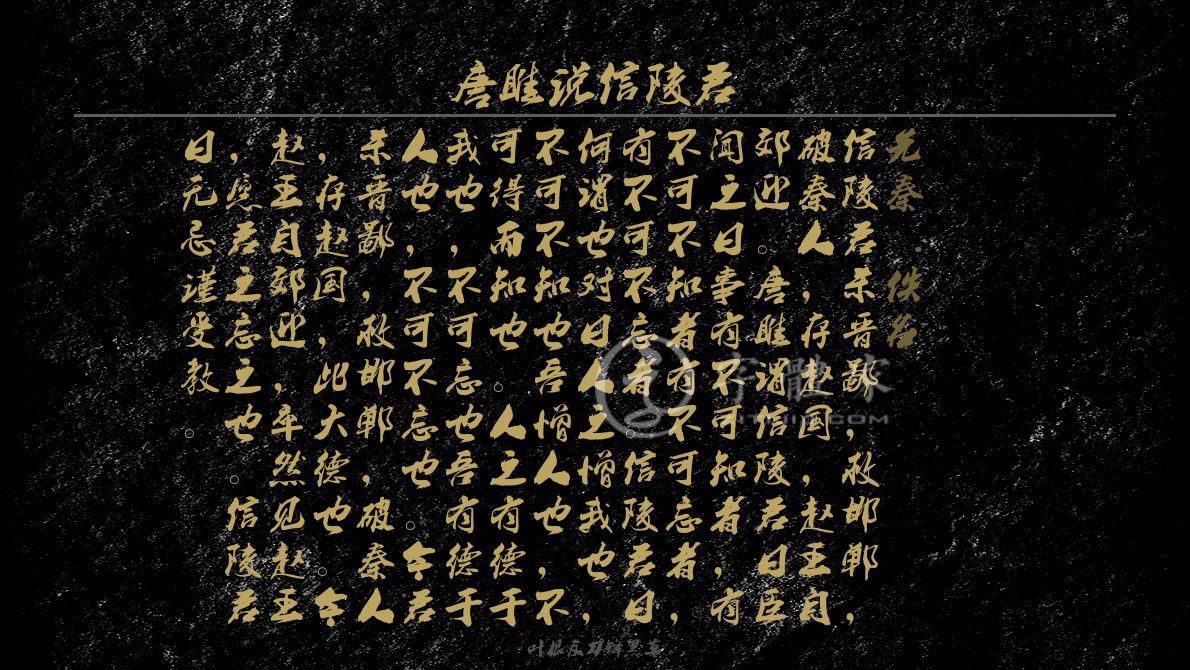 唐睢说信陵君
先秦·佚名
信陵君杀晋鄙，救邯郸，
破秦人，存赵国，赵王自
郊迎。唐睢谓信陵君曰臣
闻之曰事有不可知者，有
不可不知者有不可忘者，
有不可不忘者。信陵君曰
何谓也对曰人之憎我也，
不可不知也吾憎人也，不
可得而知也。人之有德于
我也，不可忘也吾有德于
人也，不可不忘也。今君
杀晋鄙，救邯郸，破秦人
，存赵国，此大德也。今
赵王自郊迎，卒然见赵王
，愿君之忘之也。信陵君
曰无忌谨受教。
字體家
叶根友刀锋黑草